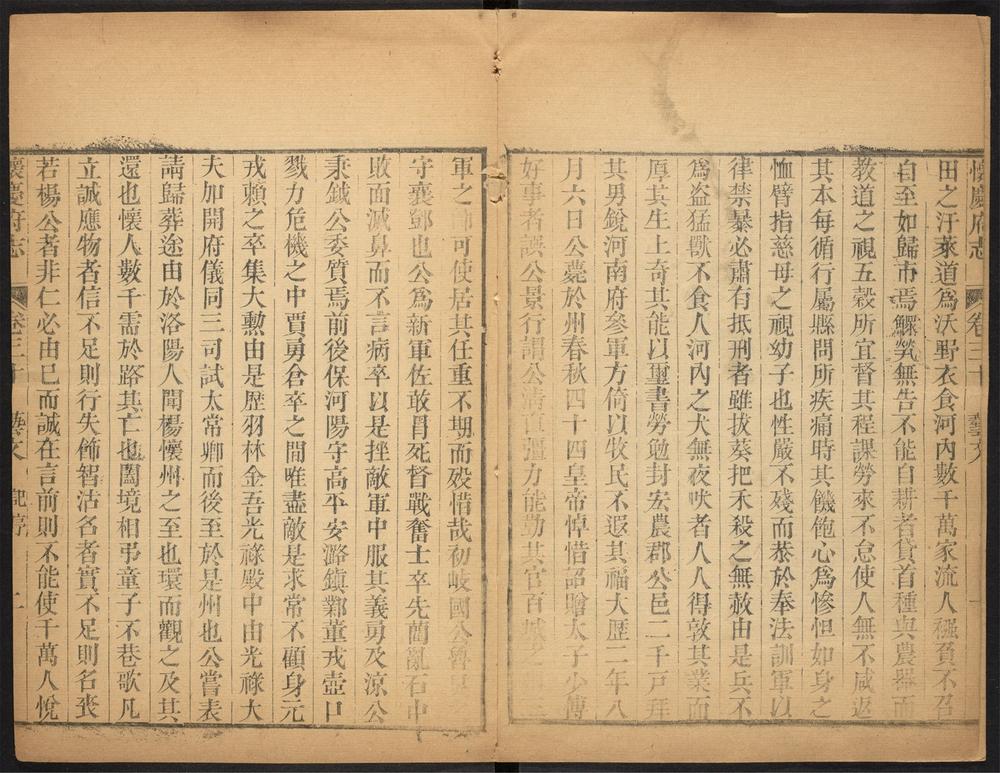 懷慶府志 卷三十 藝文
田之汙萊遒爲沃野衣食河內數千萬家流人襁負不召
自至如歸市焉鰥煢無告不能自耕者貸首種與農器而
教道之視五穀所宜督其程課勞來不怠使人無不咸返
其本每循行屬縣問所疾痛時其饑飽心爲慘怛如身之
恤臂指慈母之視幼子也性嚴不殘而恭於奉法訓軍以
律禁暴必肅有抵刑者雖拔葵把禾殺之無赦由是兵不
爲盜猛獸不食人河內之犬無夜吠者人人得敦其業而
厚其生上奇其能以璽書勞勉封宏農郡公邑二千戸拜
其男銳河南府參軍方倚以牧民不遐其福大歷二年八
月六日公薨於州春秋四十四皇帝悼惜詔贈太子少傅
好事者誤公景行謂公清直彊力能勤其官百城之
軍之帥可使居其任重不期而歿惜哉初岐國公魯
守襄鄧也公爲新軍佐敢冒死督戰奮士卒先藺亂石中
敗面滅鼻而不言病卒以是挫敵軍中服其義勇及涼公
秉鉞公委質焉前後保河陽守高平安潞鎮鄴董戎壺口
戮力危機之中賈勇倉卒之間唯盡敵是求常不顧身元
戎賴之卒集大勲由是歷羽林金吾光祿殿中由光祿大
夫加開府儀同三司試太常卿而後至於是州也公嘗表
請歸葬途由於洛陽人聞楊懷州之至也環而觀之及其
還也懷人數千需於路其亡也闔境相弔童子不巷歌凡
立誠應物者信不足則行失飾智沽名者實不足則名喪
若楊公者非仁必由已而誠在言前則不能使千萬人悅
懷慶府志 卷三十 藝文 記序 二